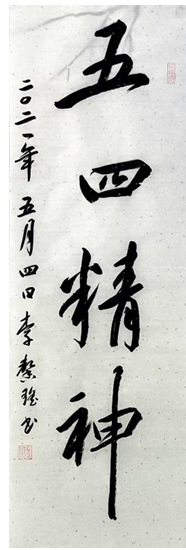 五四精神
二〇二一年五月四日李繫瑶书